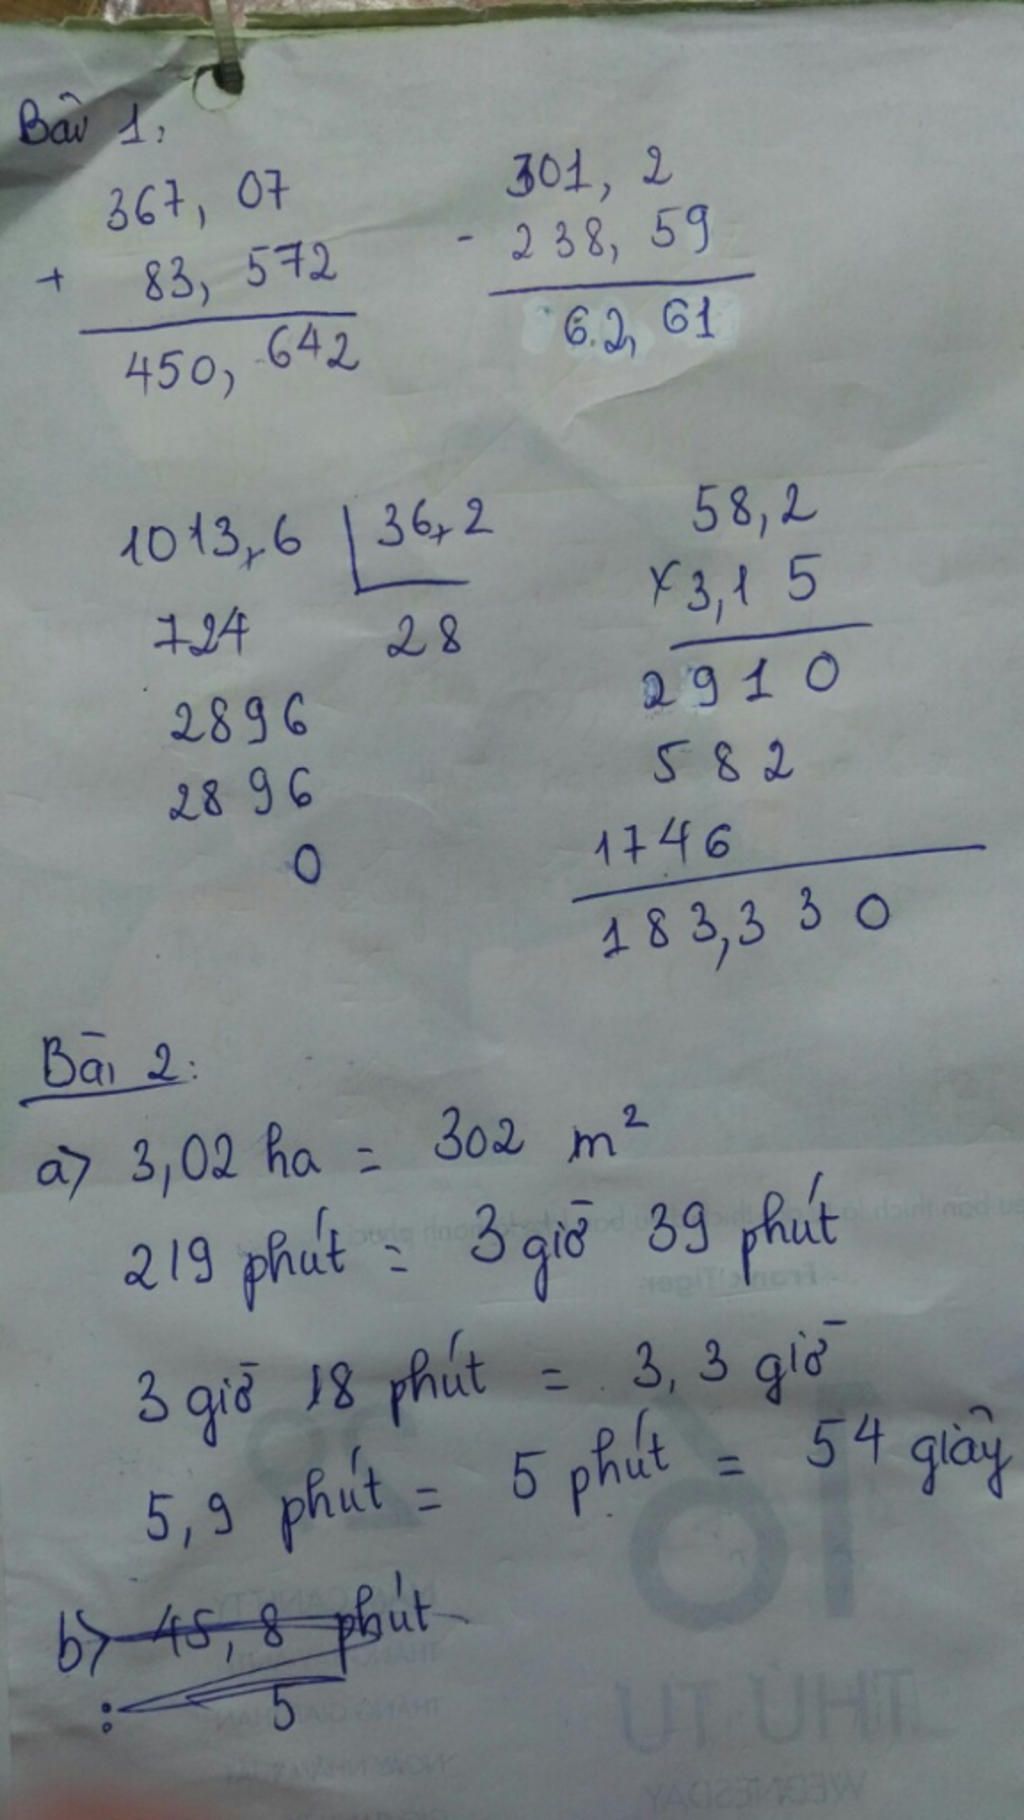 Bài 1:
367, 07
+ 83, 572
450, 642
301, 2
- 238, 59
62, 61
1013,6 36,2
724 28
2896
2896
0
58,2
x 3,15
2910
582
1746
183,330
Bài 2:
a) 3,02 ha = 302 m²
219 phút = 3 giờ 39 phút
3 giờ 18 phút = 3,3 giờ
5,9 phút = 5 phút = 54 giây
b) 45,8 phút
: 5
THỨ TƯ
WEDNESDAY